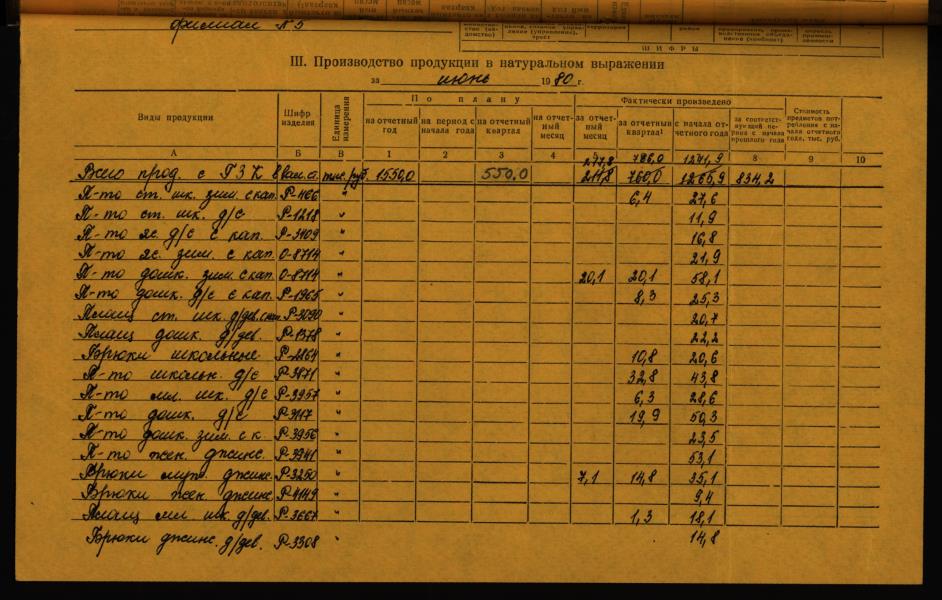 филиал N 5
ШИФРЫ
III. Производство продукции в натуральном выражении
за июнь 1980 г.
Виды продукции | Шифр изделия | Единица измерения | По плану | Фактически произведено | Стоимость предметов потребления с начала отчетного года, тыс. руб.
на отчетный год | на период с начала года | на отчетный квартал | на отчетный месяц | за отчетный месяц | за отчетный квартал¹ | с начала отчетного года | за соответствующий период с начала прошлого года
А | Б | В | 1 | 2 | 3 | 4 | 8 | 9 | 10
277,8 | 786,0 | 1241,9
Всего прод. с ГЗК | тыс. руб. | 1550,0 | 550,0 | 760,0 | 1265,9 | 834,2
П-то ст. шк. зим. с кап. | Р-466 | " | 6,4 | 27,6
П-то ст. шк. д/с | Р-1218 | " | 11,9
П-то яс. д/с с кап. | Р-3409 | " | 16,8
П-то яс. зим. с кап. | 0-8714 | " | 21,9
П-то дошк. зим. с кап. | 0-8714 | " | 20,1 | 20,1 | 58,1
П-то дошк. д/с с кап. | Р-1965 | " | 8,3 | 25,3
Плащ ст. шк. д/дев. с кап. | Р-3090 | " | 20,7
Плащ дошк. д/дев. | Р-1578 | " | 22,2
Брюки школьные | Р-2864 | " | 10,8 | 20,6
П-то школьн. д/с | Р-3871 | " | 32,8 | 43,8
П-то мл. шк. д/с | Р-3957 | " | 6,3 | 28,6
П-то дошк. д/с | Р-3117 | " | 19,9 | 50,3
П-то дошк. зим. с к. | Р-3956 | " | 23,5
П-то жен. джинс. | Р-3941 | " | 53,1
Брюки муж. джинс. | Р-3250 | " | 7,1 | 14,8 | 35,1
Брюки жен. джинс. | Р-4149 | " | 9,4
Плащ мл. шк. д/дев. | Р-3667 | " | 1,3 | 18,1
Брюки джинс. д/дев. | Р-3308 | " | 14,8